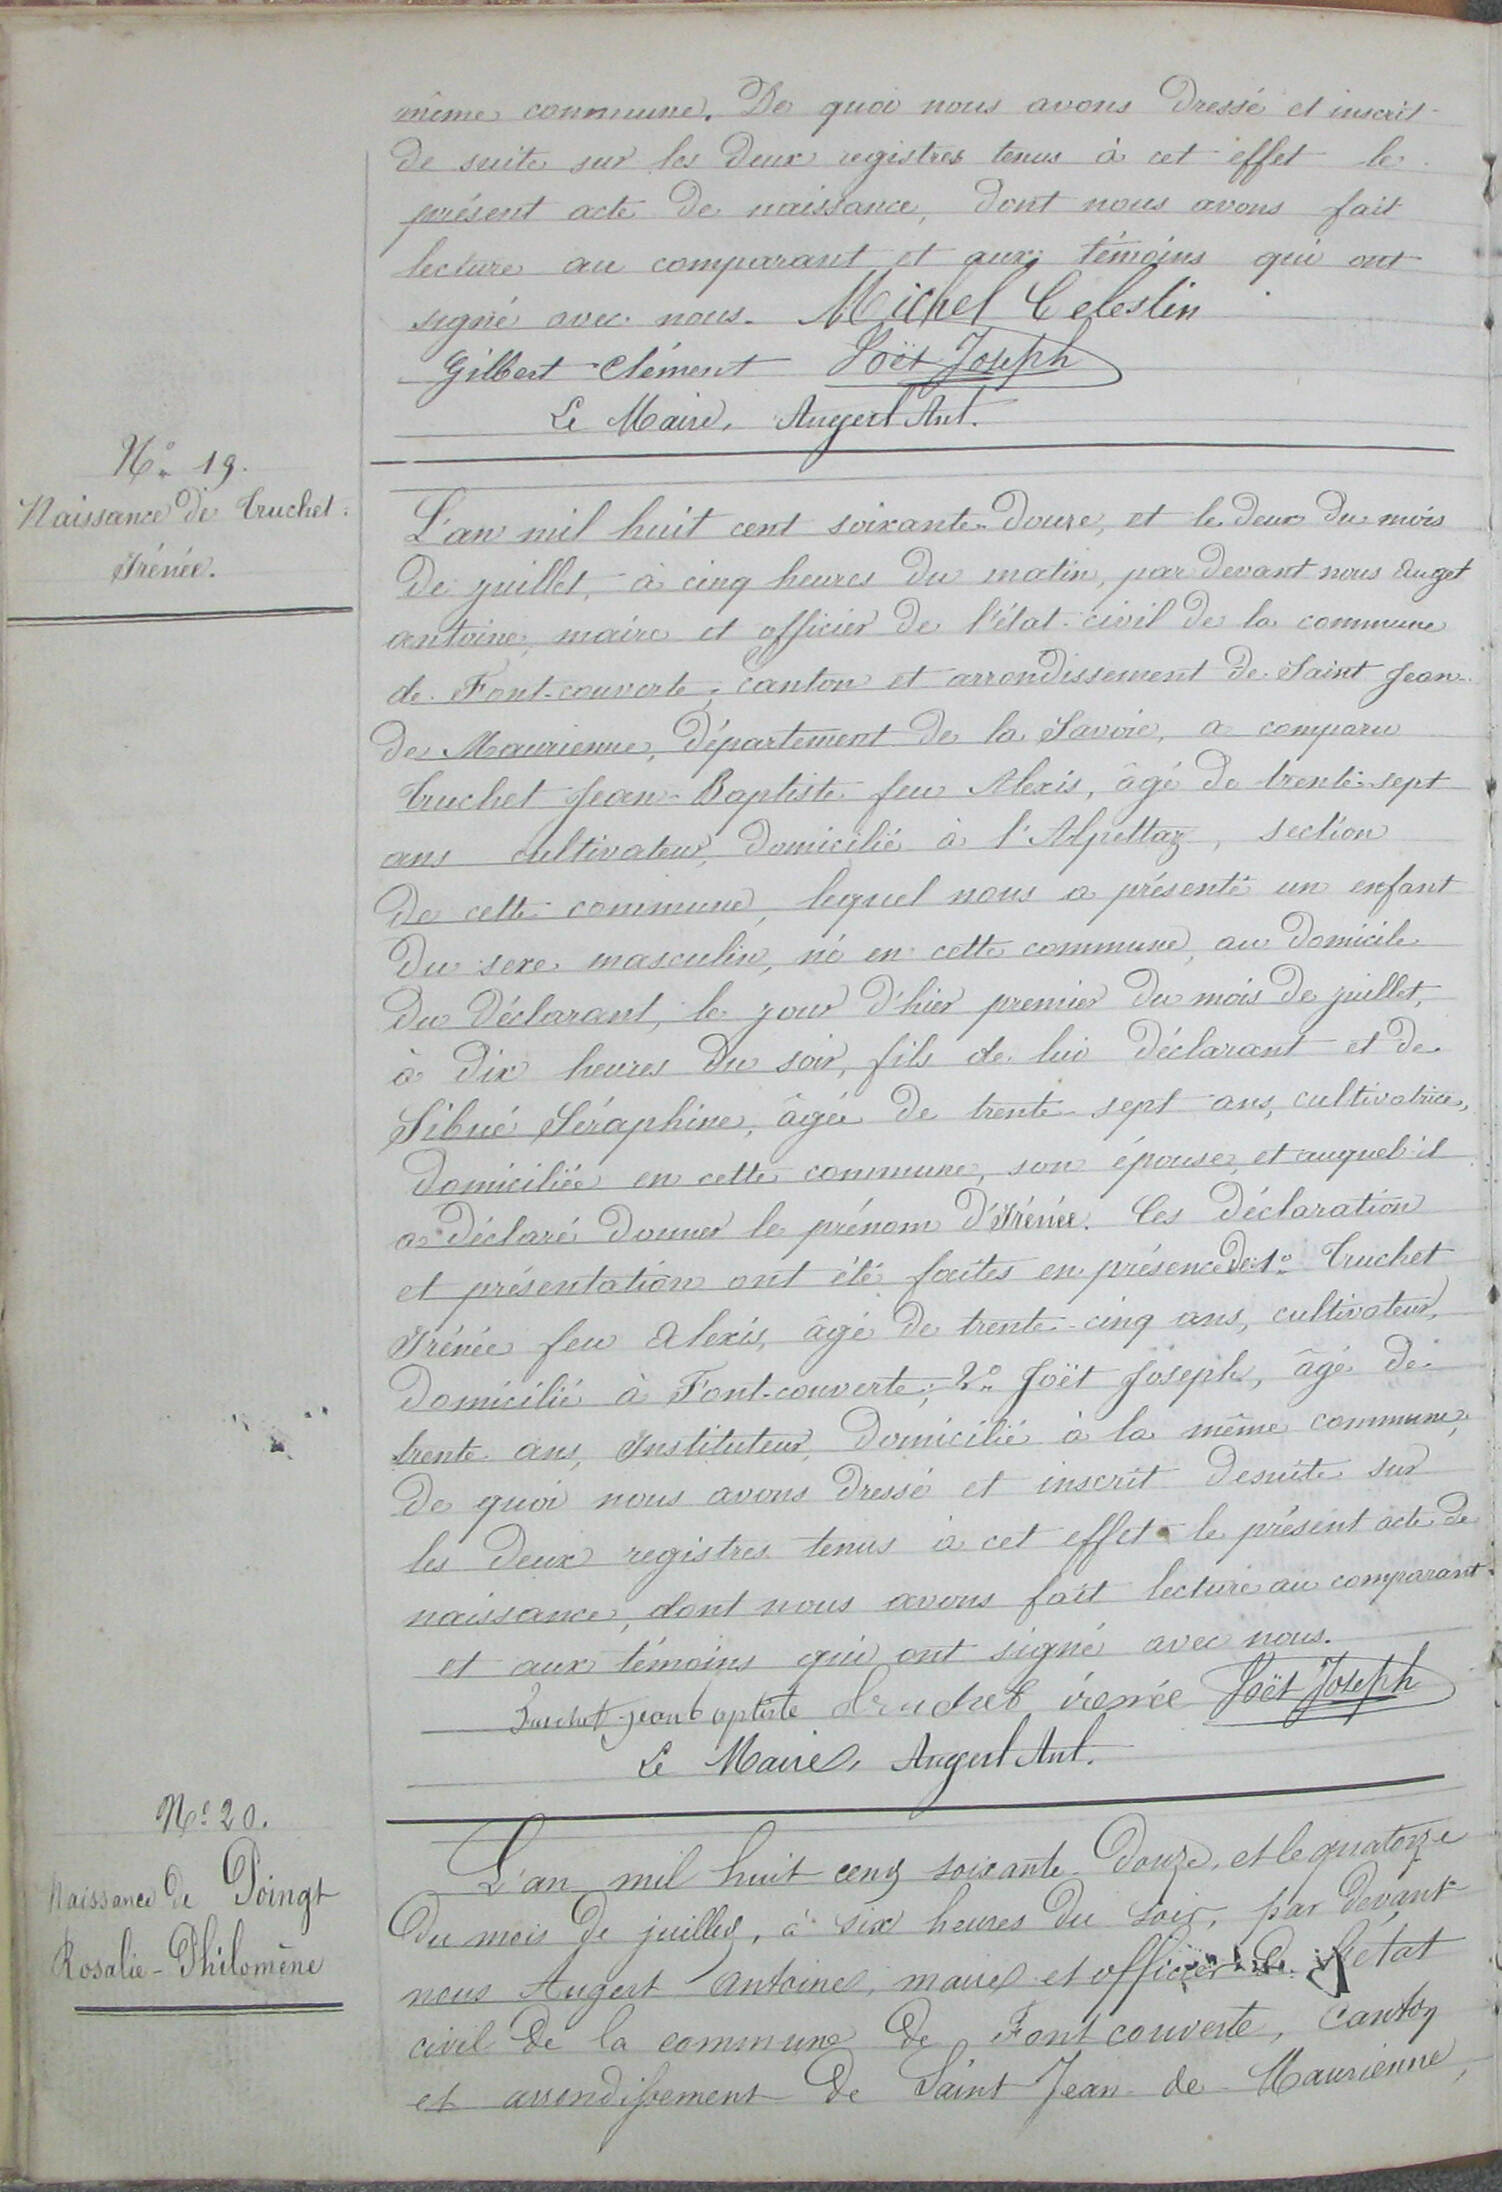 même commune. De quoi nous avons dressé et inscrit
de suite sur les deux registres tenus à cet effet le
présent acte de naissance, dont nous avons fait
lecture au comparant et aux témoins qui ont
signé avec nous. Michel Celestin
Gilbert Clément Joët Joseph
Le Maire, Augert Ant.
N° 19.
Naissance de Truchet
Irénée.
L'an mil huit cent soixante-douze, et le deux du mois
de juillet, à cinq heures du matin, par devant nous Auget
antoine, maire et officier de l'état-civil de la commune
de Font-couverte, canton et arrondissement de Saint Jean-
de Maurienne, département de la Savoie, a comparu
Truchet Jean-Baptiste feu Alexis, âgé de trente-sept
ans cultivateur, domicilié à l'Alpettaz, section
de cette commune, lequel nous a présenté un enfant
du sexe masculin, né en cette commune, au domicile
du déclarant, le jour d'hier premier du mois de juillet,
à dix heures du soir, fils de lui déclarant et de
Sibué Séraphine, âgée de trente-sept ans, cultivatrice,
domiciliée en cette commune, son épouse, et auquel il
a déclaré donner le prénom d'Irénée. Ces déclaration
et présentation ont été faites en présence de 1° Truchet
Irénée feu Alexis, âgé de trente-cinq ans, cultivateur,
domicilié à Font-couverte; 2° Joët Joseph, âgé de
trente ans, Instituteur, domicilié à la même commune,
de quoi nous avons dressé et inscrit desuite sur
les deux registres tenus à cet effet le présent acte de
naissance, dont nous avons fait lecture au comparant
et aux témoins qui ont signé avec nous.
Truchet jean baptiste truchet irenée Joët Joseph
Le Maire, Augert Ant.
N° 20.
Naissance de Poingt
Rosalie-Philomène
L'an mil huit cent soixante-douze, et le quatorze
du mois de juillet, à six heures du soir, par devant
nous Augert Antoine, maire et officier de l'état
civil de la commune de Fontcouverte, canton
et arrondissement de Saint Jean-de-Maurienne,